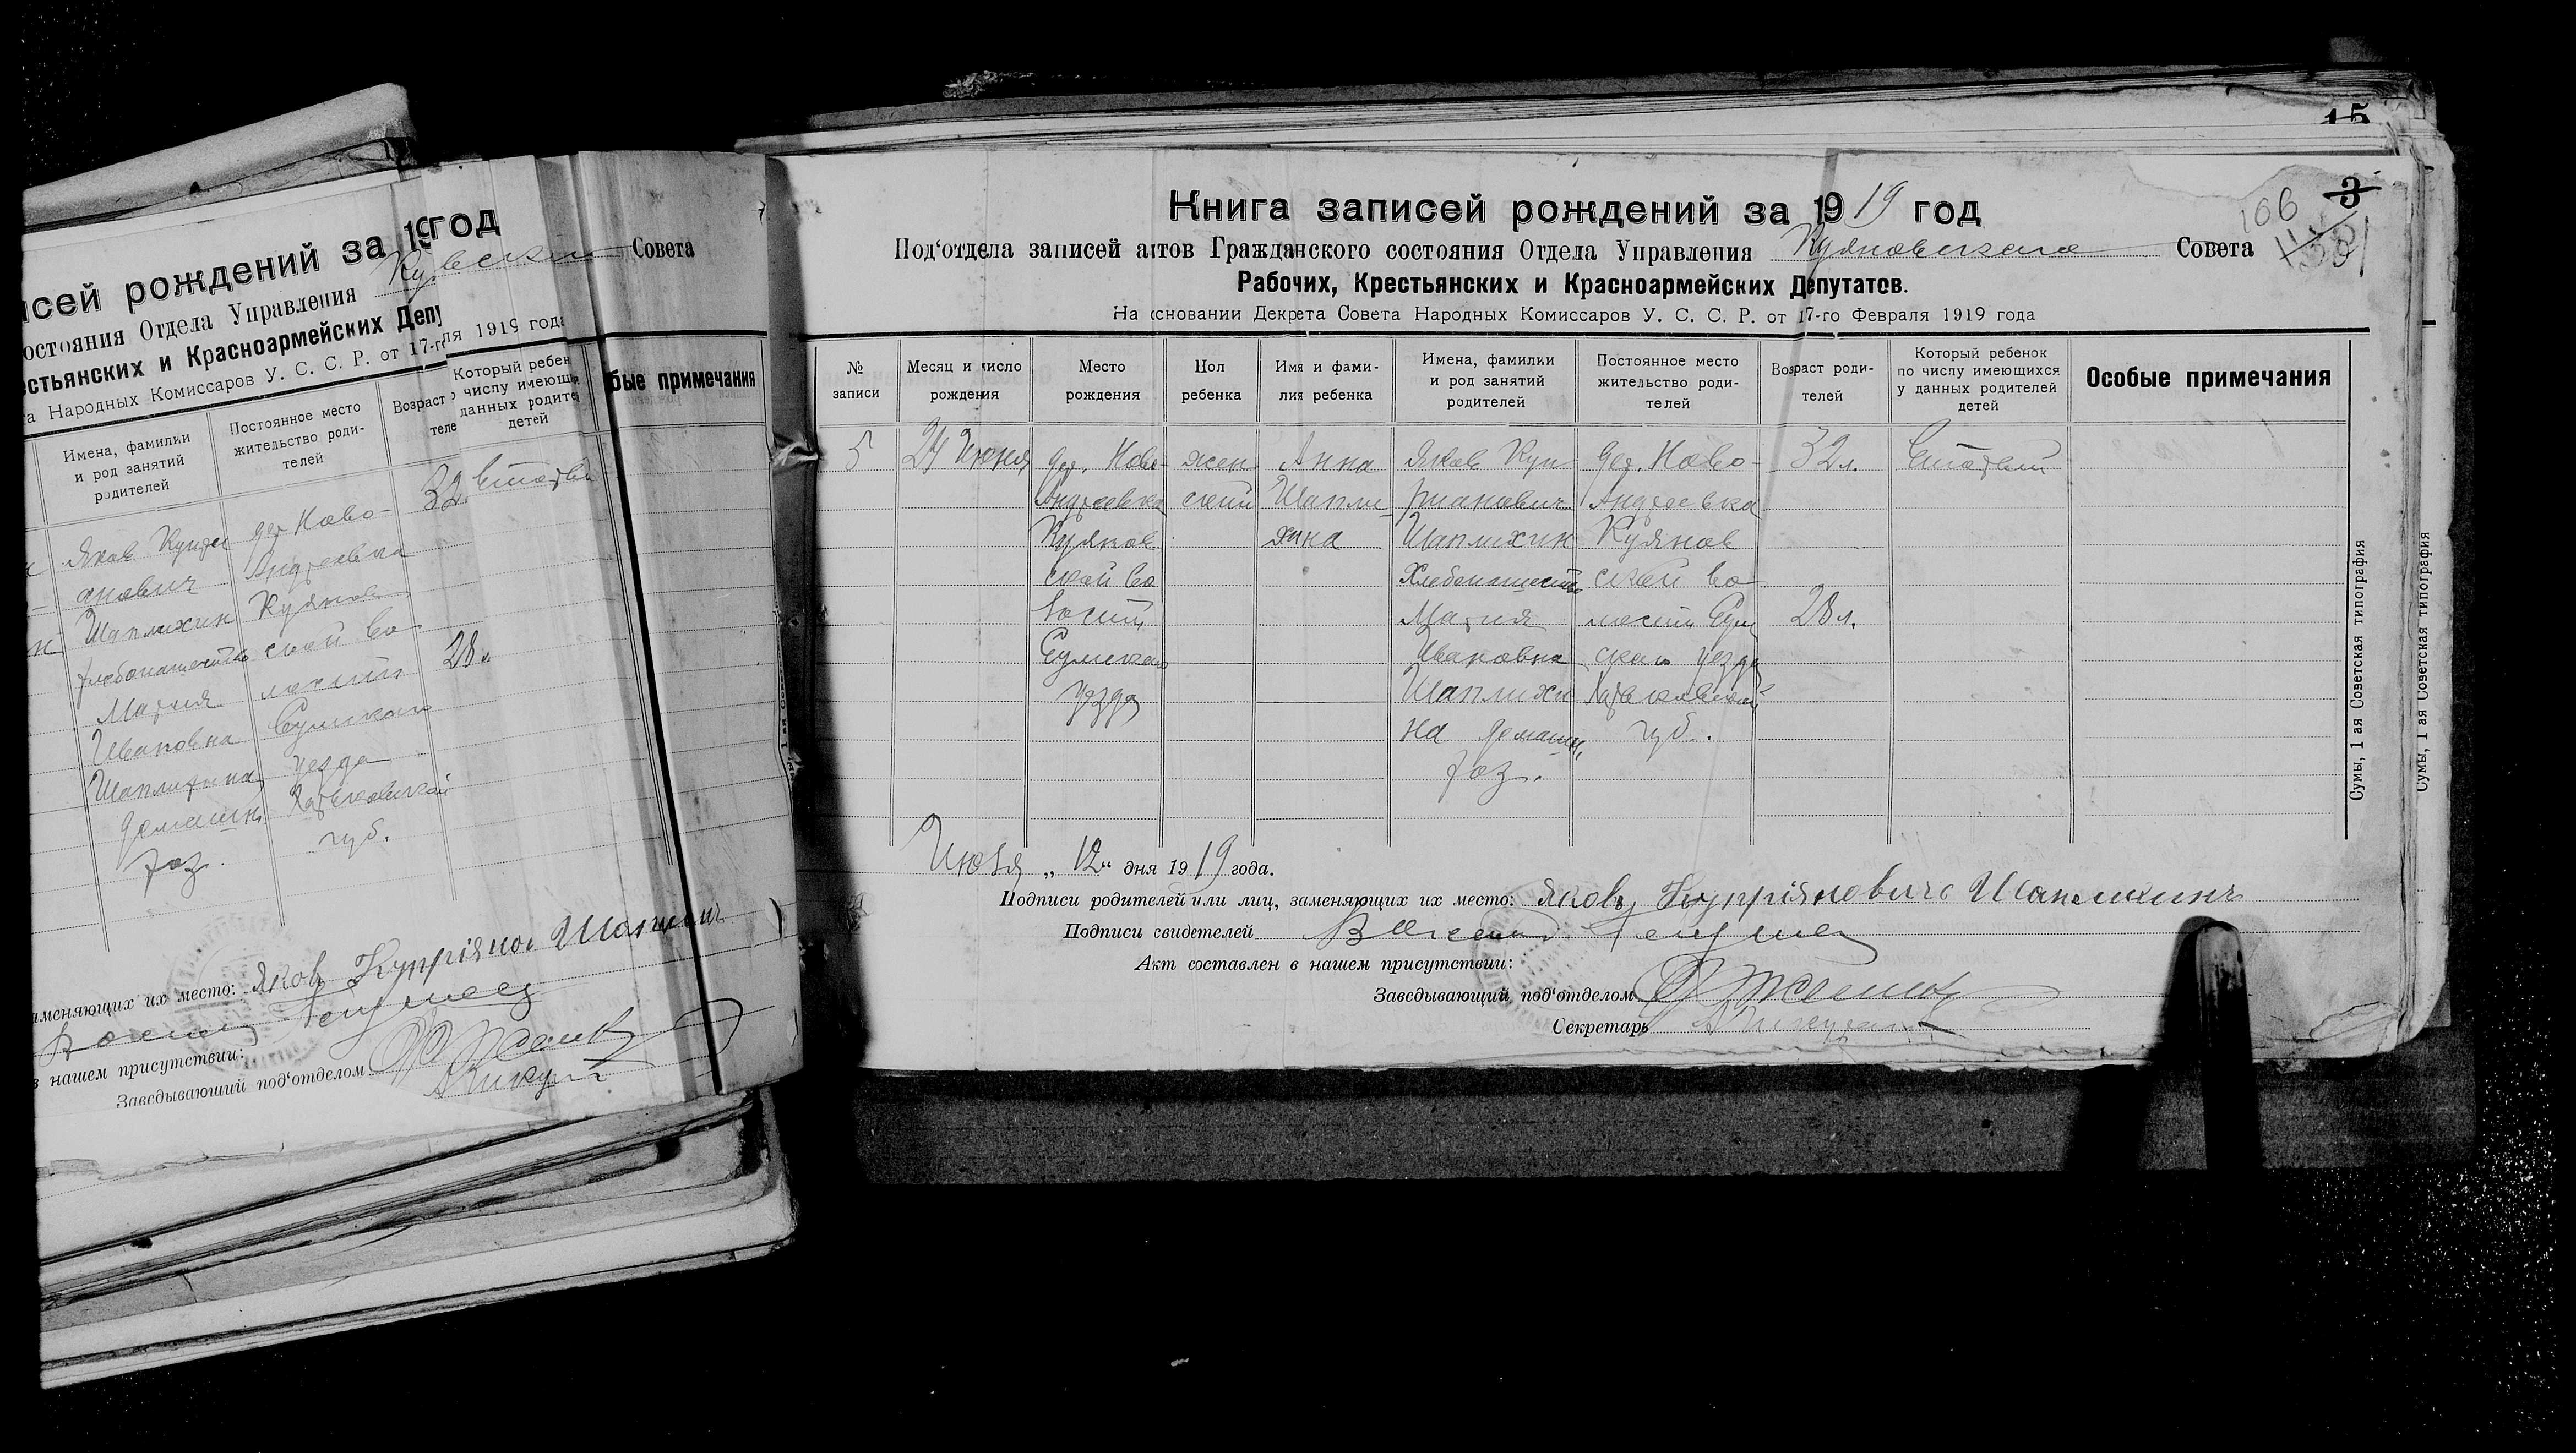 исей рождений за 19 год
остояния Отдела Управления Совета
естьянских и Красноармейских Депу
а Народных Комиссаров У. С. С. Р. от 17-го ля 1919 года
Имена, фамилии и род занятий родителей
Постоянное место жительство родителей
Возраст теле
Который ребен числу имеющи данных родите детей
бые примечания
Яков
анович
Шаплихин
хлебопашество
Мария
Ивановна
Шаплихина
домашн.
раз.
дер. Ново-
Андреевка
Куянов
ской во
лости
Сумского
уезда
Харьковской
губ.
32
28 л
аменяющих их место: Яков
в нашем присутствии:
Заведывающий под‘отделом
15
Книга записей рождений за 1919 год
106
3
Под‘отдела записей актов Гражданского состояния Отдела Управления Куяновского Совета
Рабочих, Крестьянских и Красноармейских Депутатов.
На основании Декрета Совета Народных Комиссаров У. С. С. Р. от 17-го Февраля 1919 года
№ записи
Месяц и число рождения
Место рождения
Пол ребенка
Имя и фамилия ребенка
Имена, фамилии и род занятий родителей
Постоянное место жительство родителей
Возраст родителей
Который ребенок по числу имеющихся у данных родителей детей
Особые примечания
5
24 Июня
дер. Ново-
Андреевка
Куянов
ской во
лости
Сумского
уезда
жен
ский
Анна
Шапли
хина
Яков Куп
рианович
Шаплихин
Хлебопашество
Мария
Ивановна
Шаплихи
на домашн.
раз.
дер. Ново-
Андреевка
Куянов
ской во-
лости Сум
ского уезда
Харьковской
губ.
32 л.
28 л.
Июля „12“ дня 1919 года.
Подписи родителей или лиц, заменяющих их место: Яковъ Куприяновичъ Шаплихинъ
Подписи свидетелей
Акт составлен в нашем присутствии:
Заведывающий под‘отделом
Секретарь
Сумы, 1 ая Советская типография
Сумы, 1 ая Советская типография